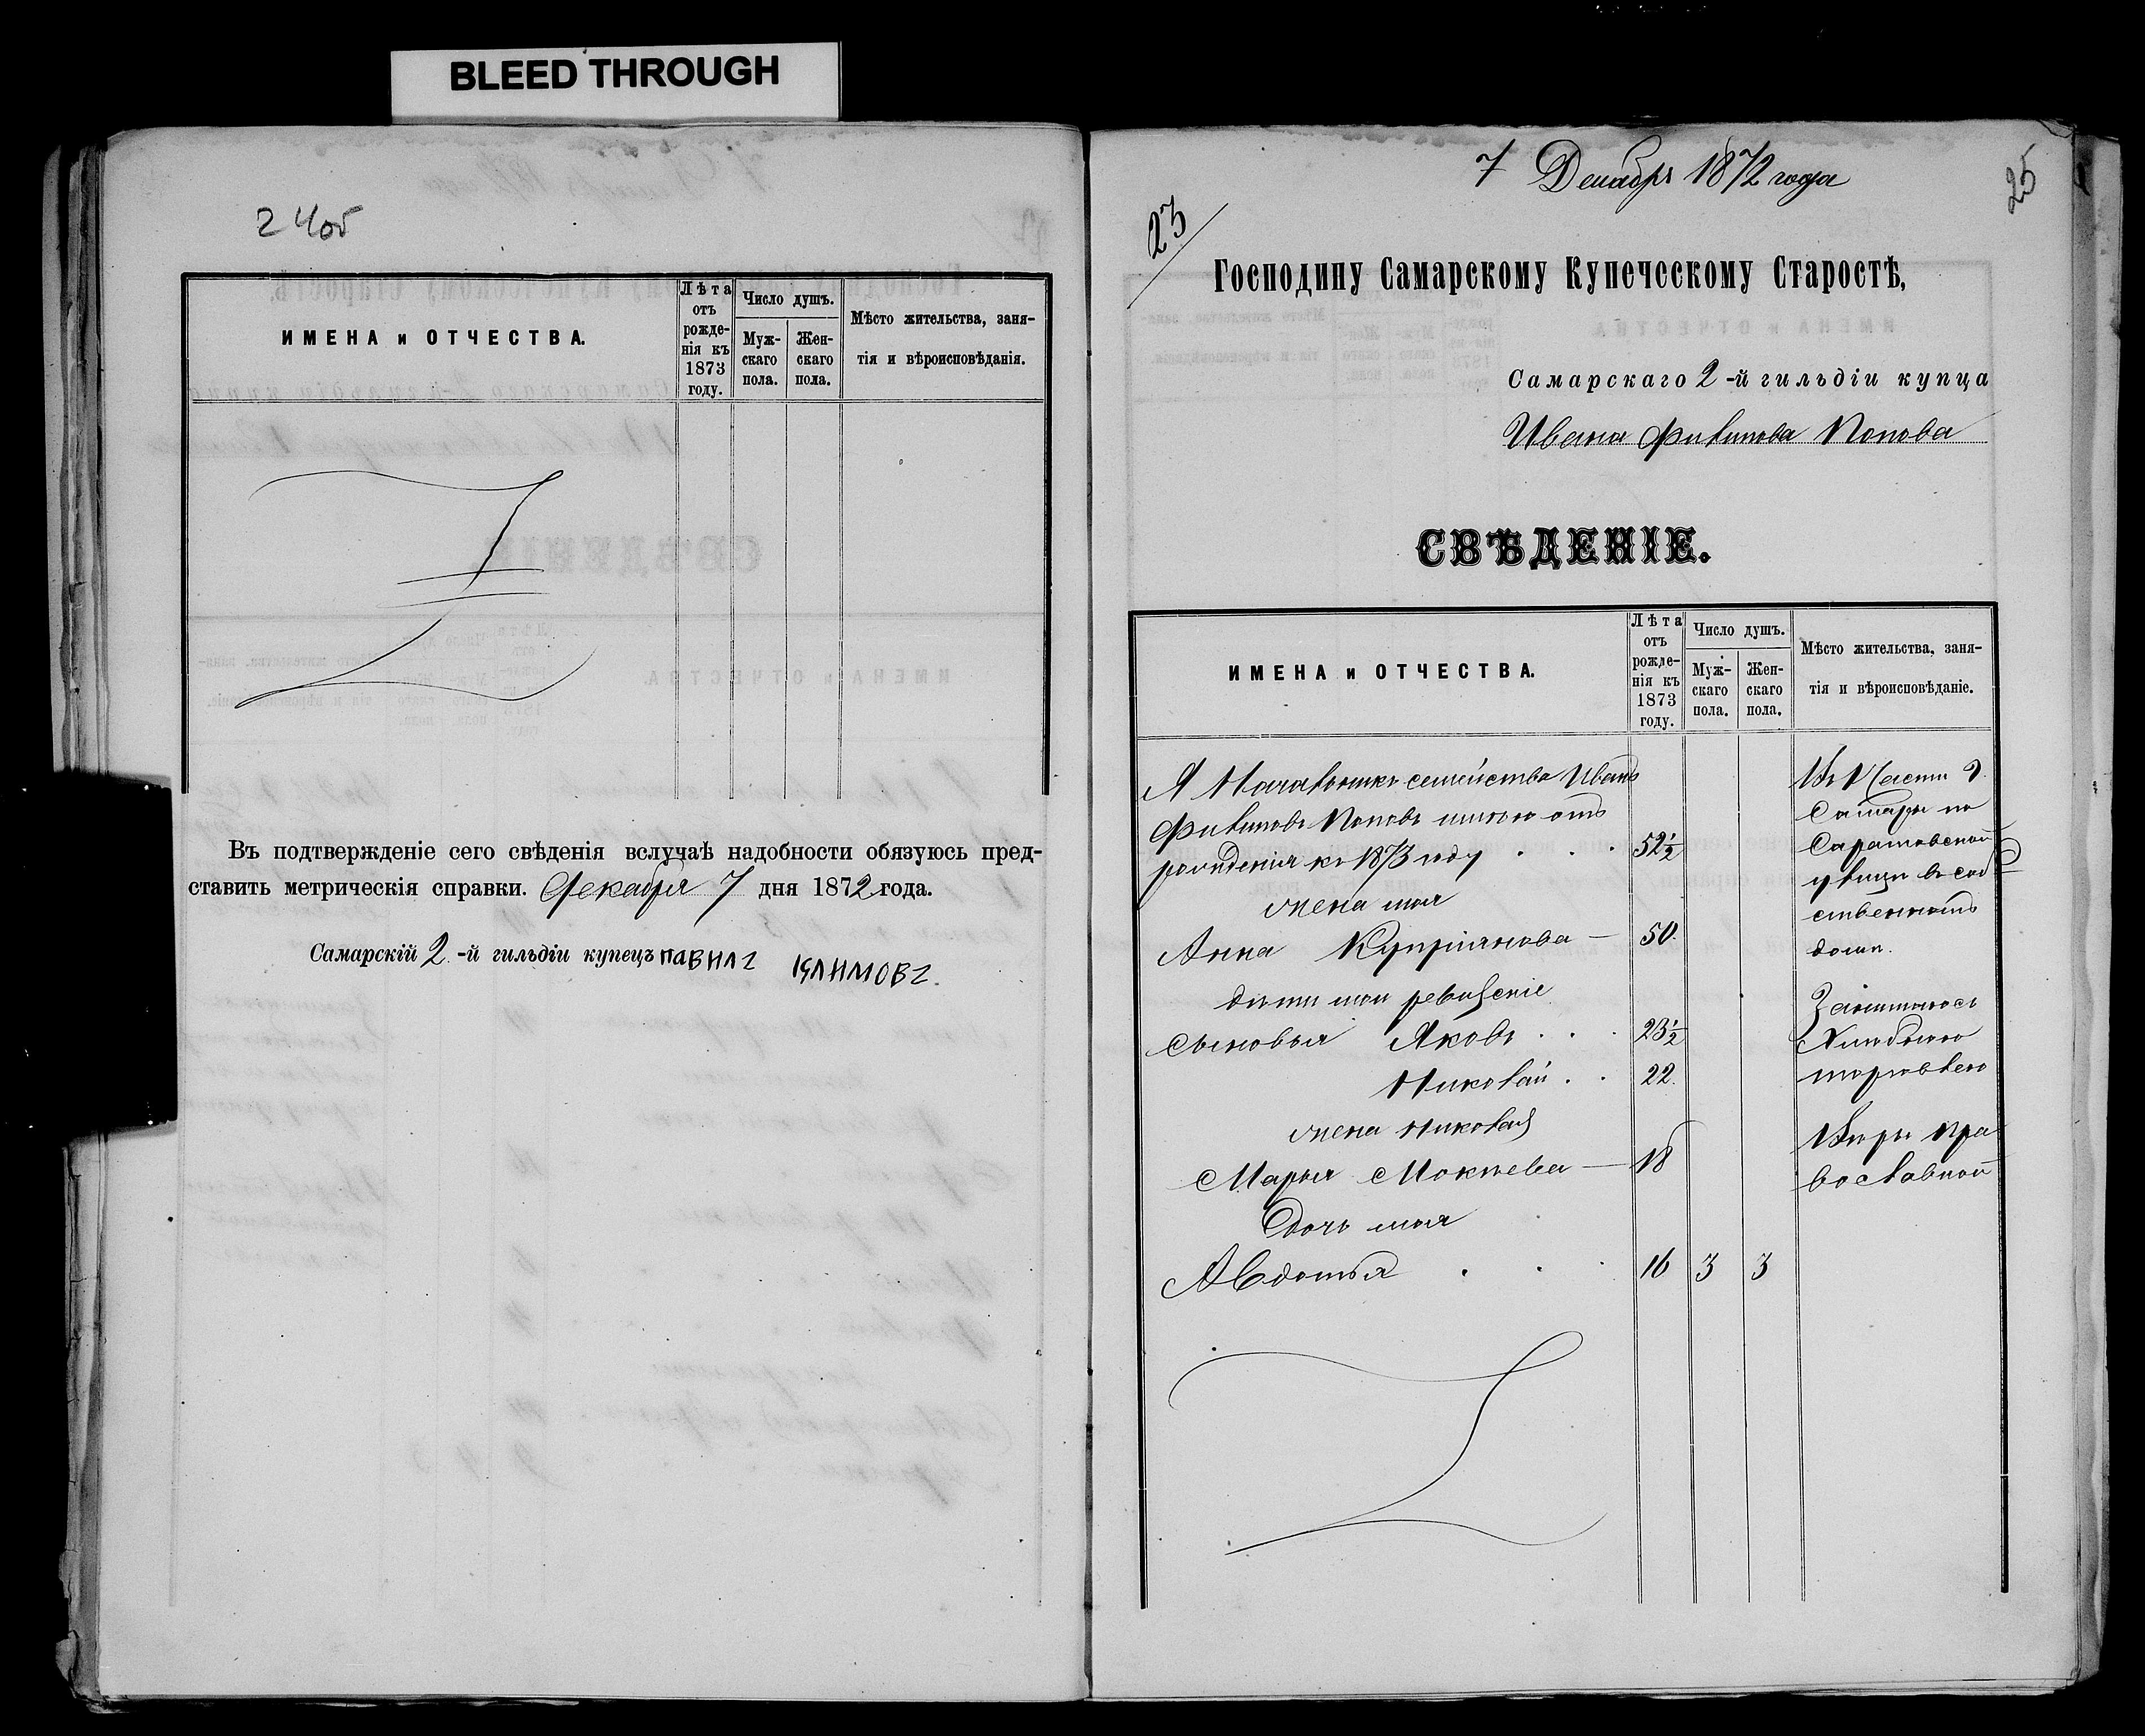 BLEED THROUGH
24об
ИМЕНА и ОТЧЕСТВА.
Лѣта отъ рожде-нія къ 1873 году.
Число душъ.
Муж-скаго пола.
Жен-скаго пола.
Мѣсто жительства, заня-
тія и вѣроисповѣданія.
Въ подтвержденіе сего свѣденія вслучаѣ надобности обязуюсь пред-
ставить метрическія справки. Декабря 7 дня 1872 года.
Самарскій 2-й гильдіи купецъ Павилъ Климовъ.
7 Декабря 1872 года
25
23
Господину Самарскому Купеческому Старостѣ,
Самарскаго 2-й гильдіи купца
Ивана Филипова Попова
СВѢДЕНІЕ.
ИМЕНА и ОТЧЕСТВА.
Лѣта отъ рожде-нія къ 1873 году.
Число душъ.
Муж-скаго пола.
Жен-скаго пола.
Мѣсто жительства, заня-
тія и вѣроисповѣданіе.
Я семейства Иванъ
Филиповъ Поповъ имѣю отъ
рожденія къ 1873 году . . . 52½
жена моя
Анна Купріянова — 50.
дѣти мои
сыновья Яковъ . . . 23½
Николай . . 22.
жена Николая
Марья Мокѣева — 18
дочь моя
Авдотья . . . 16 3 3
Части г.
Самары по
Саратовской
улицѣ въ соб
ственномъ
домѣ.
Занимаюсь
Хлѣбною
торговлею
Вѣры пра
вославной